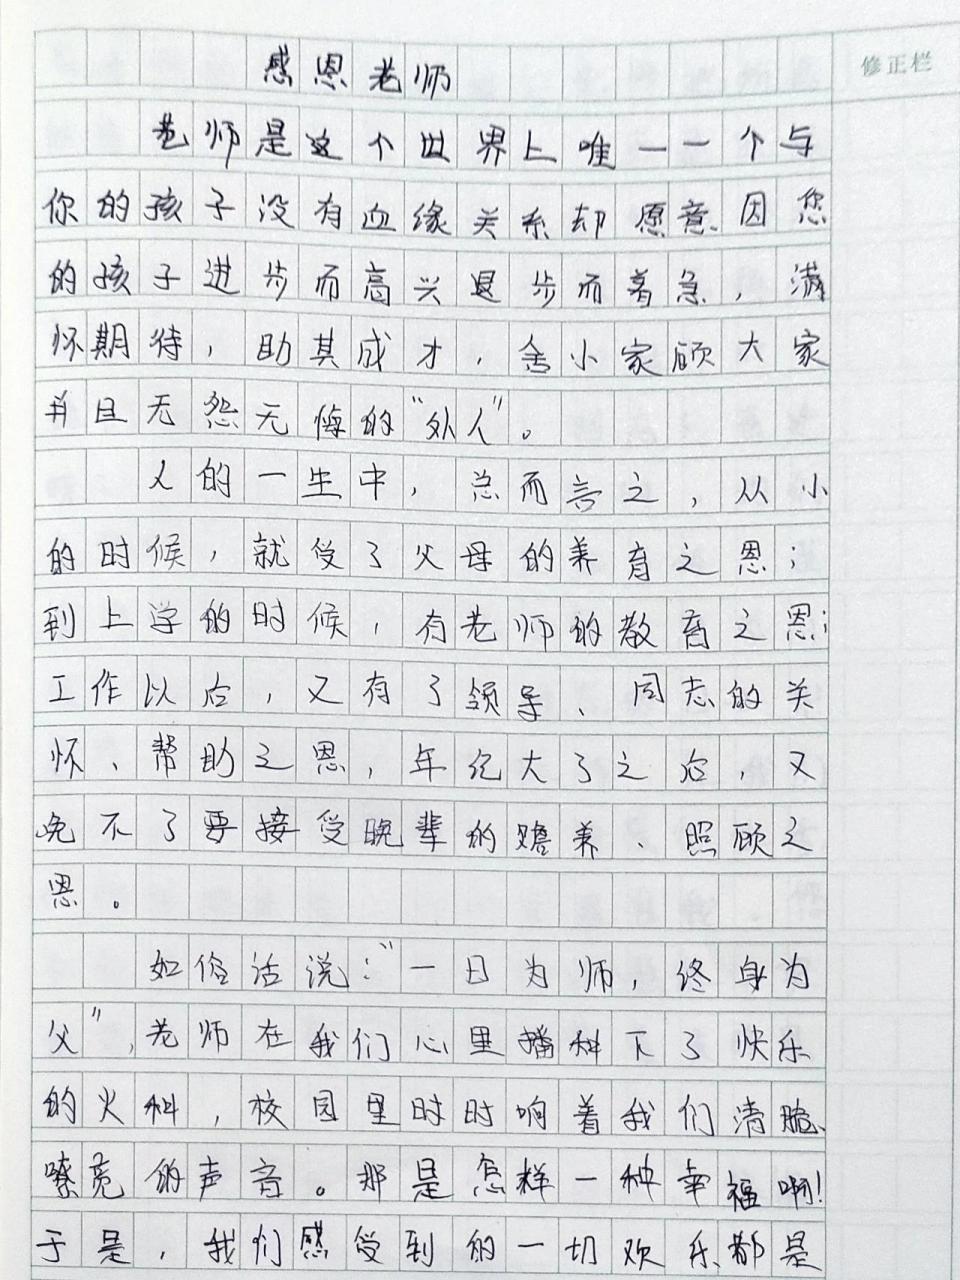 修正栏
感恩老师
老师是这个世界上唯一一个与
你的孩子没有血缘关系却愿意因您
的孩子进步而高兴退步而着急，满
怀期待，助其成才，舍小家顾大家
并且无怨无悔的“外人”。
人的一生中，总而言之，从小
的时候，就受了父母的养育之恩；
到上学的时候，有老师的教育之恩；
工作以后，又有了领导、同志的关
怀、帮助之恩，年纪大了之后，又
免不了要接受晚辈的赡养、照顾之
恩。
如俗话说：“一日为师，终身为
父”，老师在我们心里播种下了快乐
的火种，校园里时时响着我们清脆、
嘹亮的声音。那是怎样一种幸福啊！
于是，我们感受到的一切欢乐都是